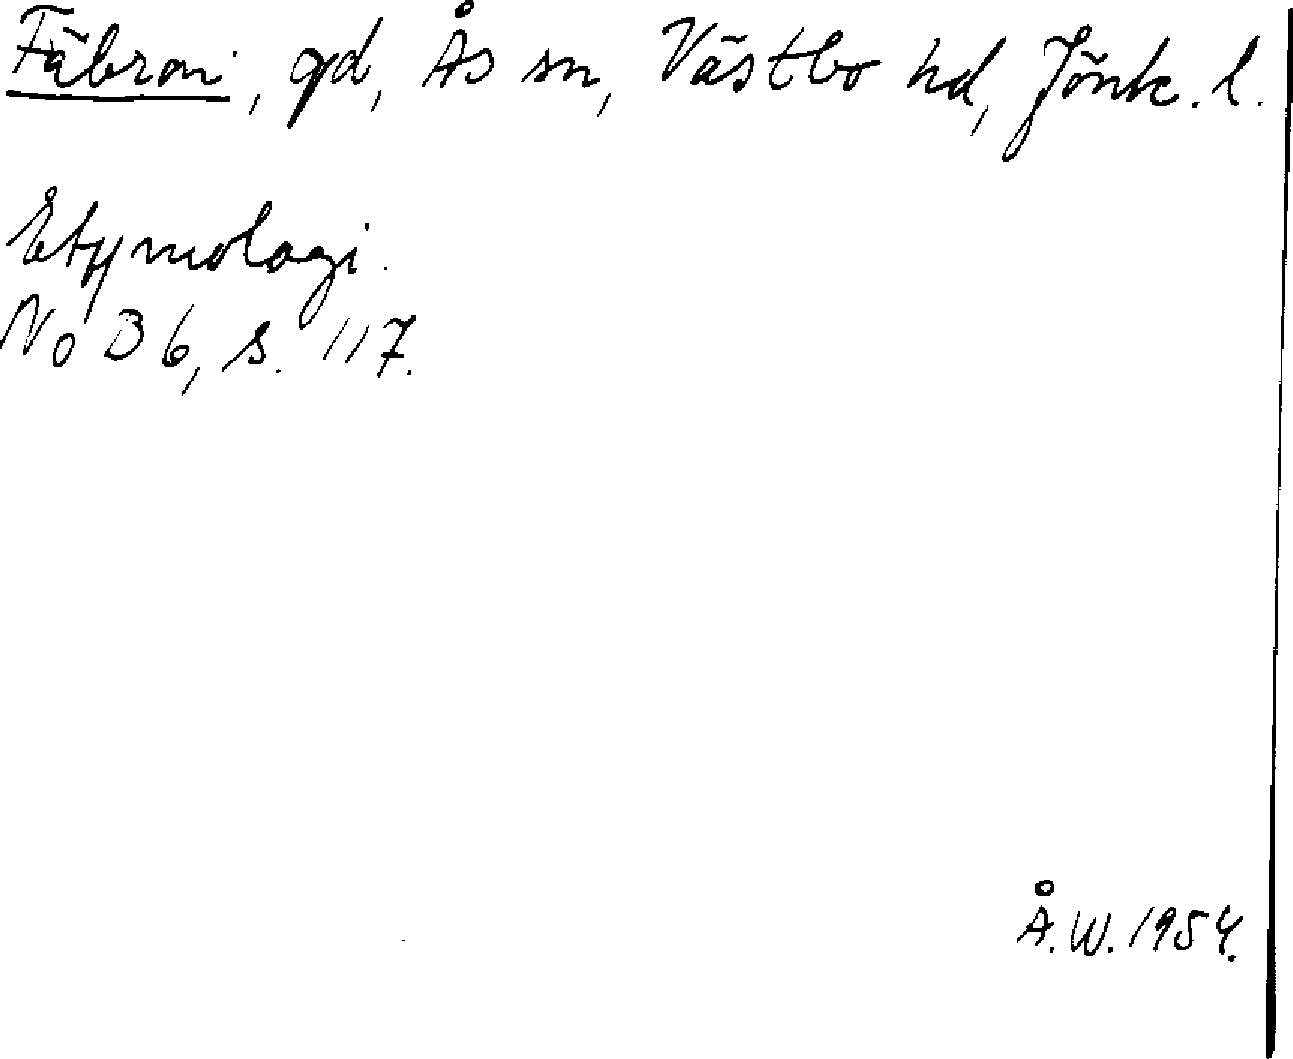 Fäbron, gd, Ås sn, Västbo hd, Jönk. l.
Etymologi.
NoB 6, s. 117.
Å.W. 1954.